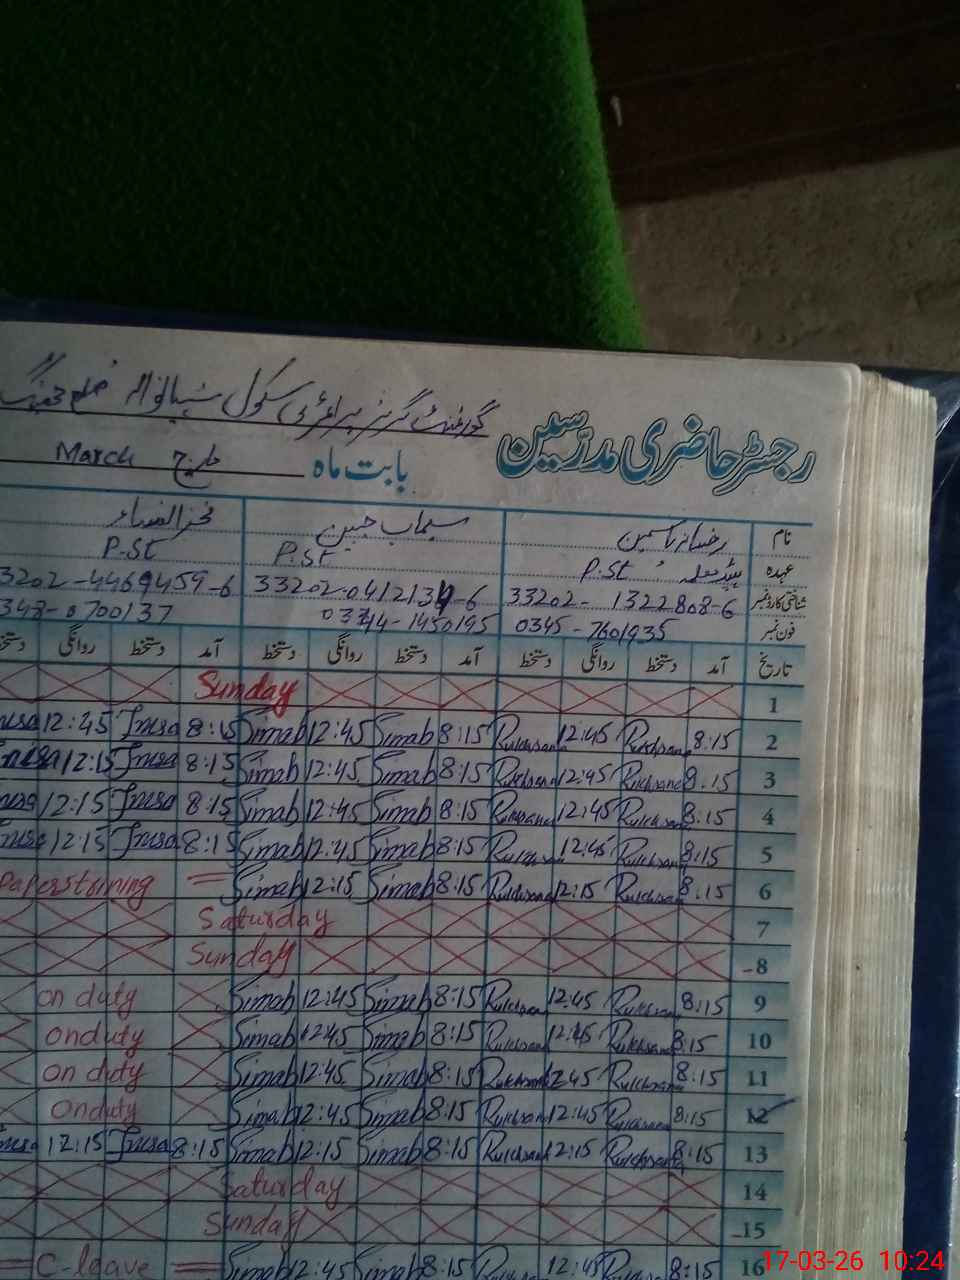 گورنمنٹ گرلز پرائمری سکول ضلع جھنگ
رجسٹر حاضری مدرسین
بابت ماہ مارچ March
نام رخسانہ یاسمین سیماب جبین فخر النساء
عہدہ ہیڈ معلمہ P.St P.St P.St
شناختی کارڈ نمبر 33202-1322808-6 33202-0412134-6 33202-4469459-6
فون نمبر 0345-7601935 0344-1450195 0348-0700137
تاریخ آمد دستخط روانگی دستخط آمد دستخط روانگی دستخط آمد دستخط روانگی دستخط
1 Sunday
2 8:15 Rukhsana 12:45 Rukhsana 8:15 Simab 12:45 Simab 8:15 Insa 12:45 Insa
3 8:15 Rukhsana 12:45 Rukhsana 8:15 Simab 12:45 Simab 8:15 Insa 12:15 Insa
4 8:15 Rukhsana 12:45 Rukhsana 8:15 Simab 12:45 Simab 8:15 Insa 12:15 Insa
5 8:15 Rukhsana 12:45 Rukhsana 8:15 Simab 12:45 Simab 8:15 Insa 12:15 Insa
6 8:15 Rukhsana 12:15 Rukhsana 8:15 Simab 12:15 Simab
7 Saturday
8 Sunday
9 8:15 Rukhsana 12:45 Rukhsana 8:15 Simab 12:45 Simab on duty
10 8:15 Rukhsana 12:45 Rukhsana 8:15 Simab 12:45 Simab on duty
11 8:15 Rukhsana 12:45 Rukhsana 8:15 Simab 12:45 Simab on duty
12 8:15 Rukhsana 12:45 Rukhsana 8:15 Simab 12:45 Simab on duty
13 8:15 Rukhsana 12:15 Rukhsana 8:15 Simab 12:15 Simab 8:15 Insa 12:15 Insa
14 Saturday
15 Sunday
16 8:15 Rukhsana 12:45 Rukhsana 8:15 Simab 12:45 Simab C-leave
17-03-26 10:24